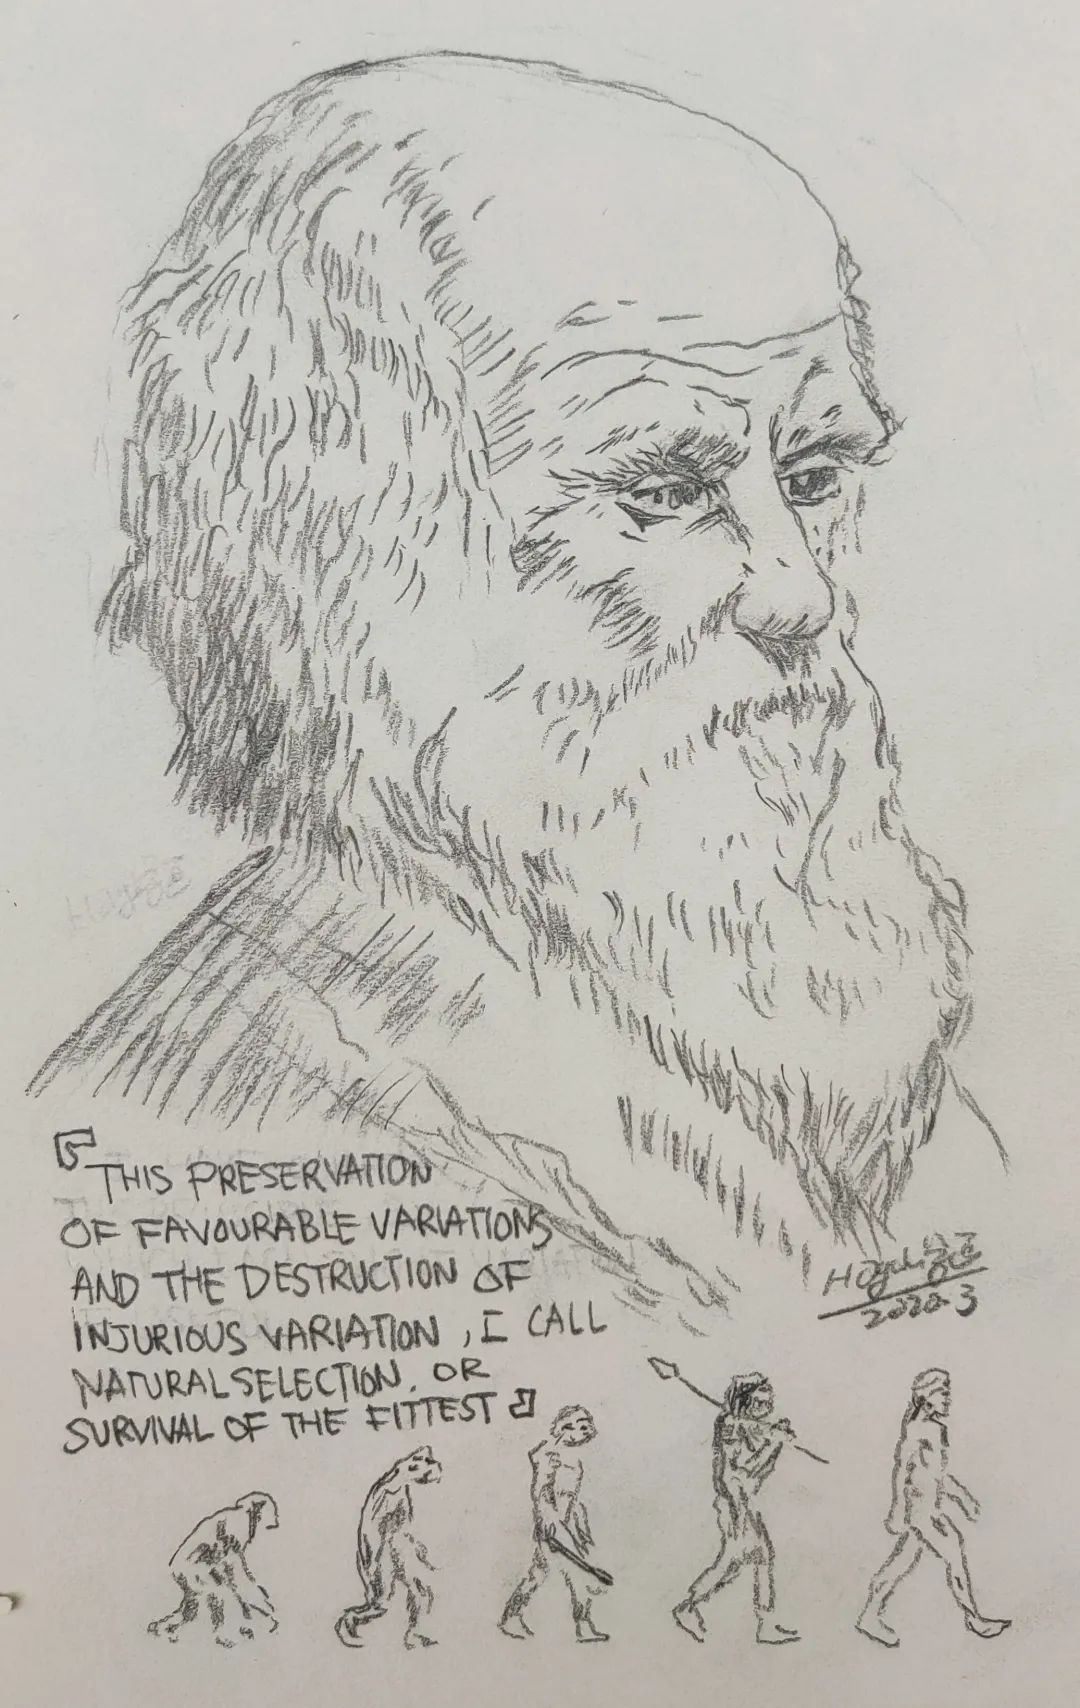 『THIS PRESERVATION
OF FAVOURABLE VARIATIONS
AND THE DESTRUCTION OF
INJURIOUS VARIATION, I CALL
NATURAL SELECTION. OR
SURVIVAL OF THE FITTEST』
2020.3